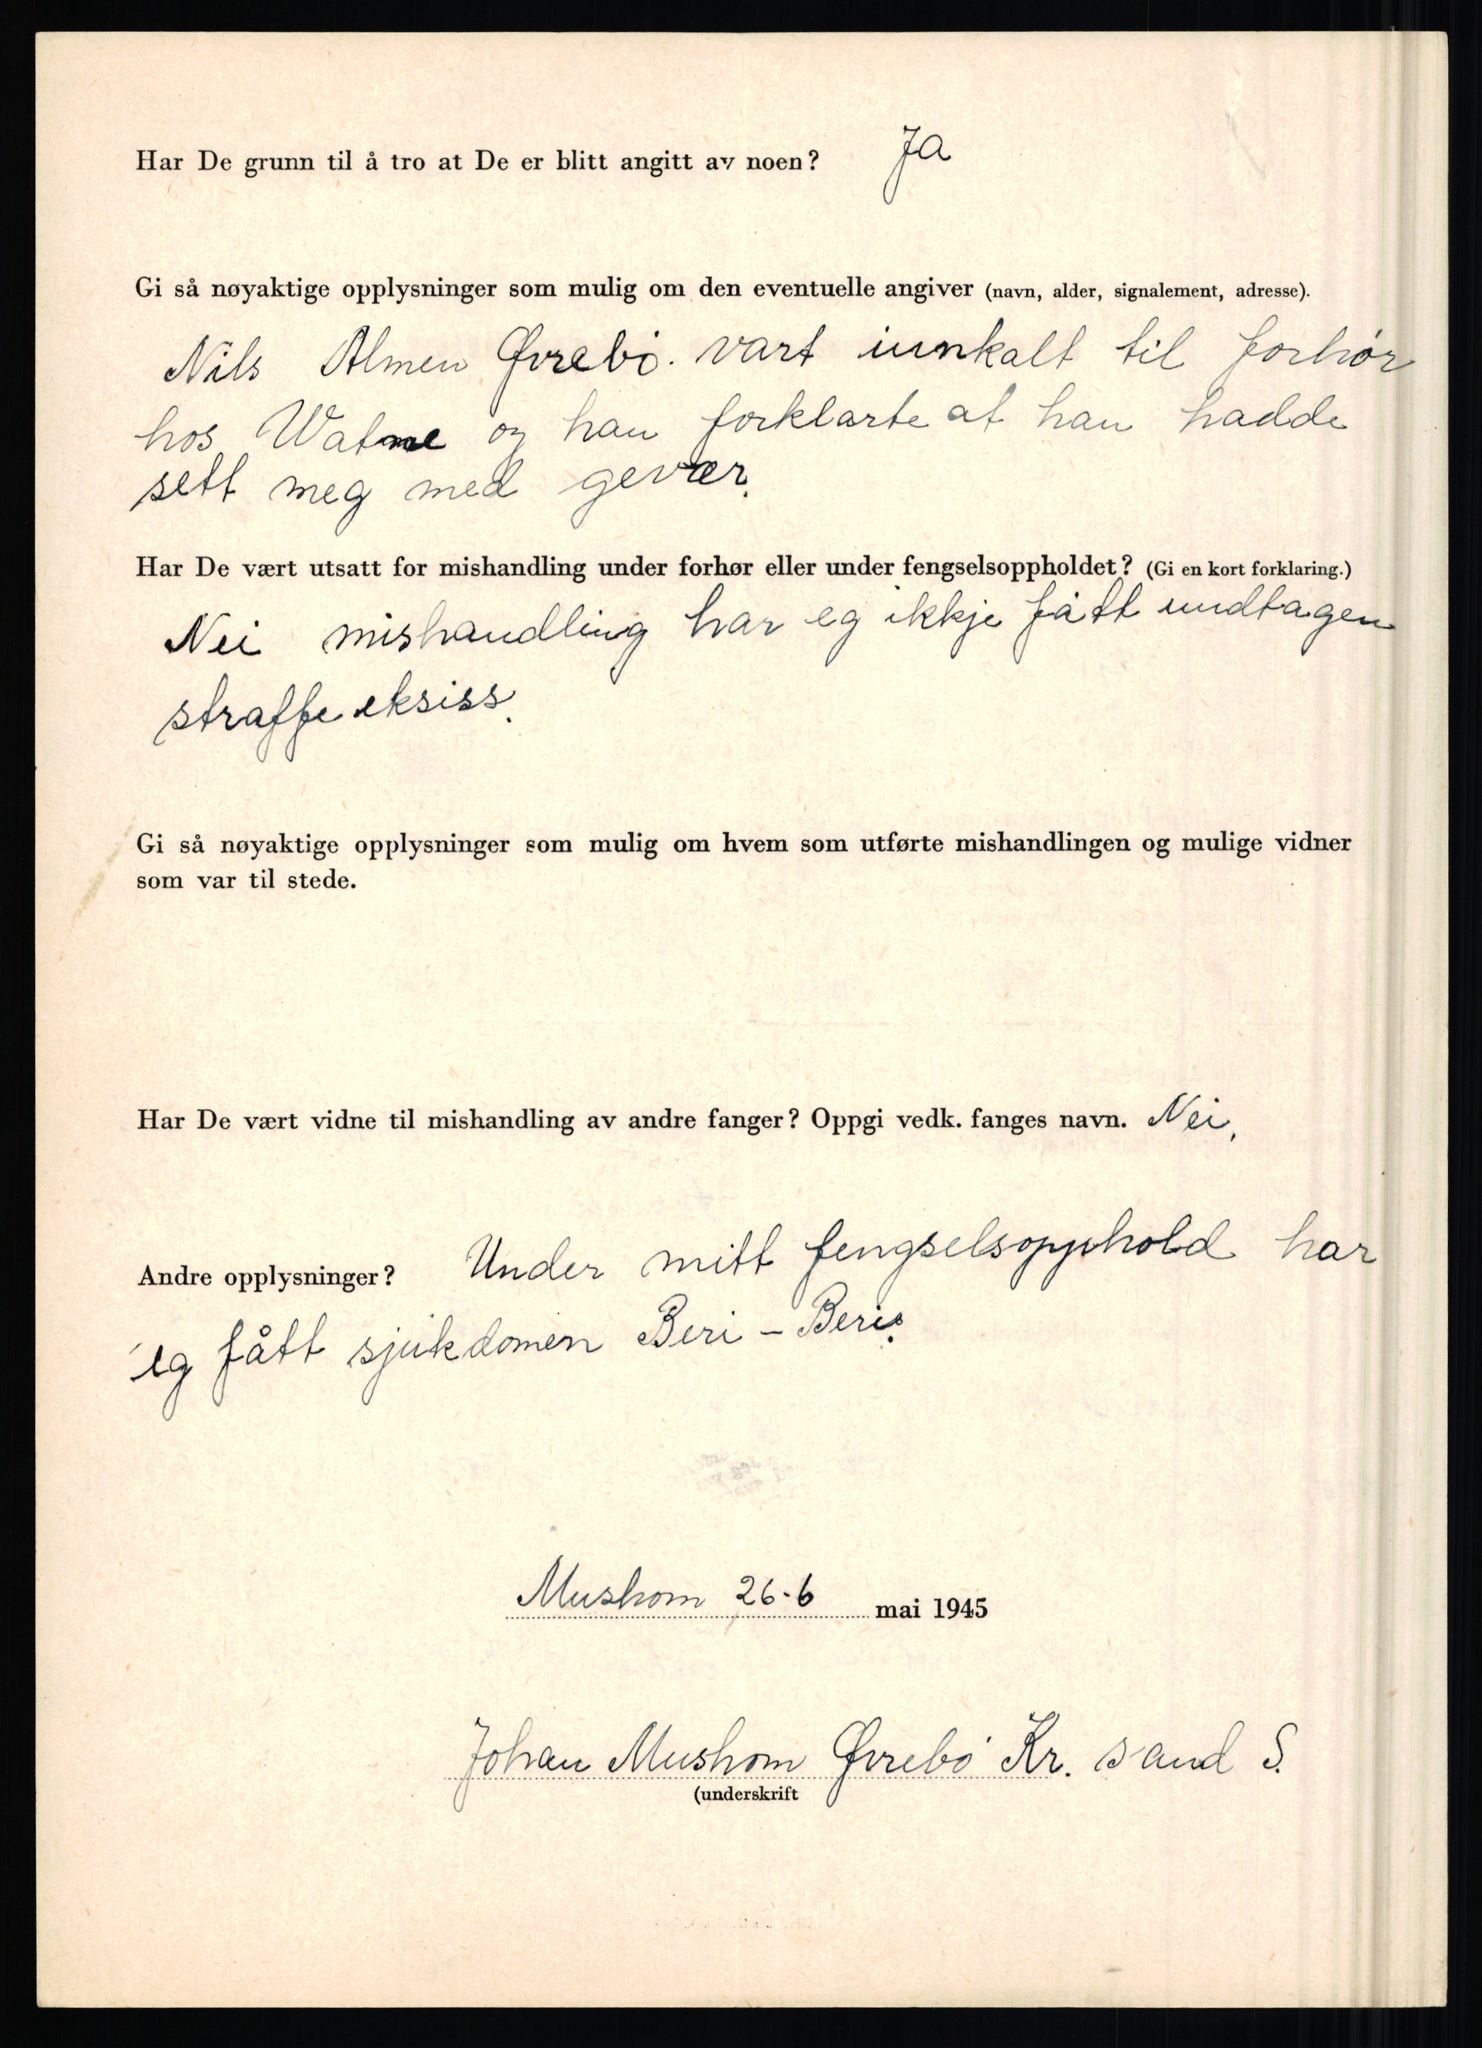 Har De grunn til å tro at De er blitt angitt av noen? Ja
Gi så nøyaktige opplysninger som mulig om den eventuelle angiver (navn, alder, signalement, adresse).
Nils Almen Øvrebö. vart innkalt til forhør
hos Watne og han forklarte at han hadde
sett meg med gevær.
Har De vært utsatt for mishandling under forhør eller under fengselsoppholdet? (Gi en kort forklaring.)
Nei mishandling har eg ikkje fått undtagen
straffe eksiss.
Gi så nøyaktige opplysninger som mulig om hvem som utførte mishandlingen og mulige vidner
som var til stede.
Har De vært vidne til mishandling av andre fanger? Oppgi vedk. fanges navn. Nei.
Andre opplysninger? Under mitt fengselsopphold har
eg fått sjukdomen Beri - Beri.
Mushom 26-6 mai 1945
Johan Mushom Øvrebö Kr. sand S.
(underskrift